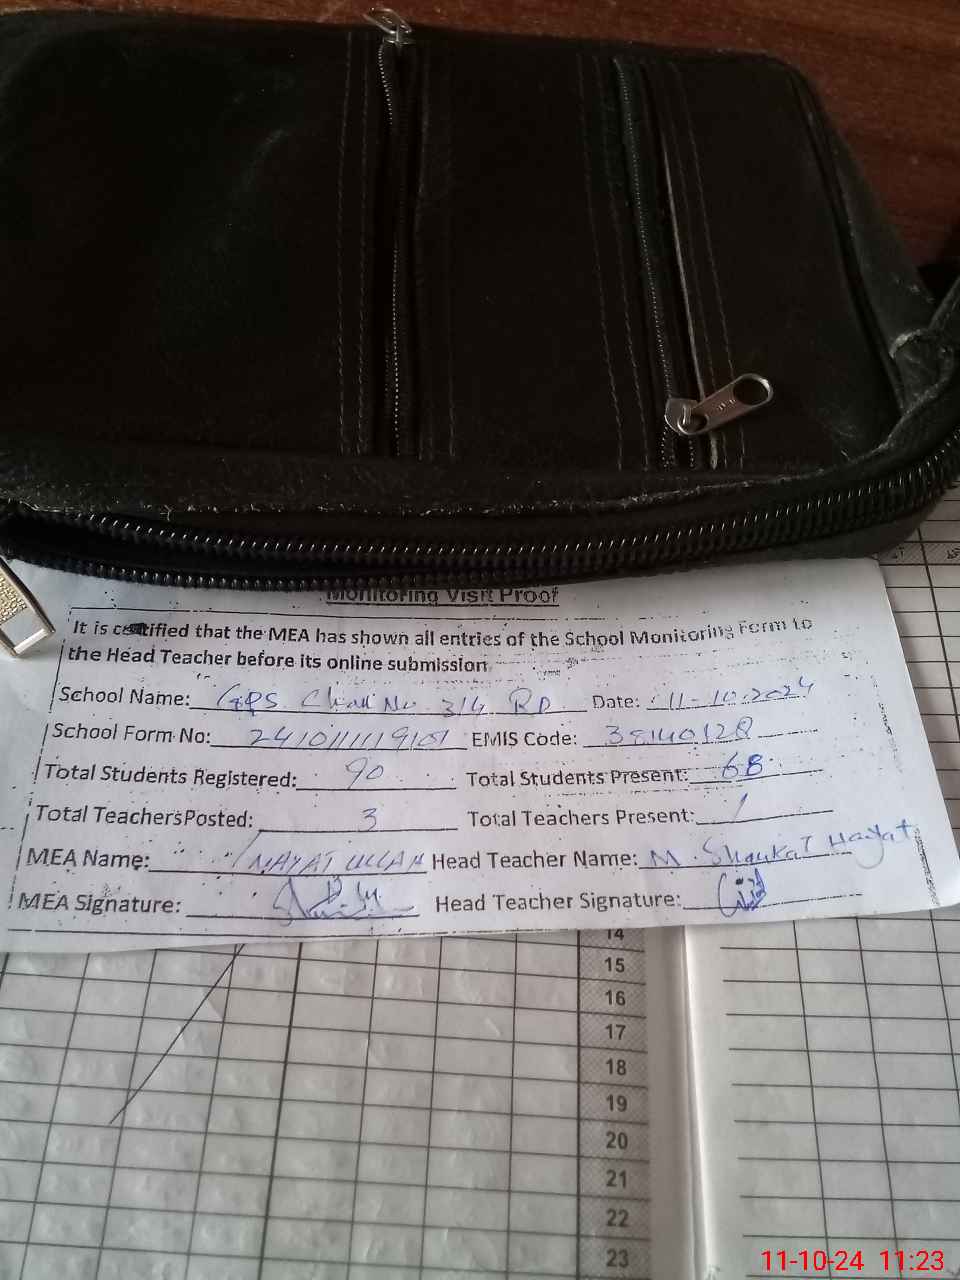 Monitoring Visit Proof
It is certified that the MEA has shown all entries of the School Monitoring Form to
the Head Teacher before its online submission
School Name: GPS Chak No 314 RD Date: 11-10-2024
School Form No: EMIS Code: 38140128
Total Students Registered: 90 Total Students Present: 68
Total Teachers Posted: 3 Total Teachers Present: 1
MEA Name: INAYAT ULLAH Head Teacher Name: M. Shaukat Hayat
MEA Signature: Head Teacher Signature:
14
15
16
17
18
19
20
21
22
23
11-10-24 11:23